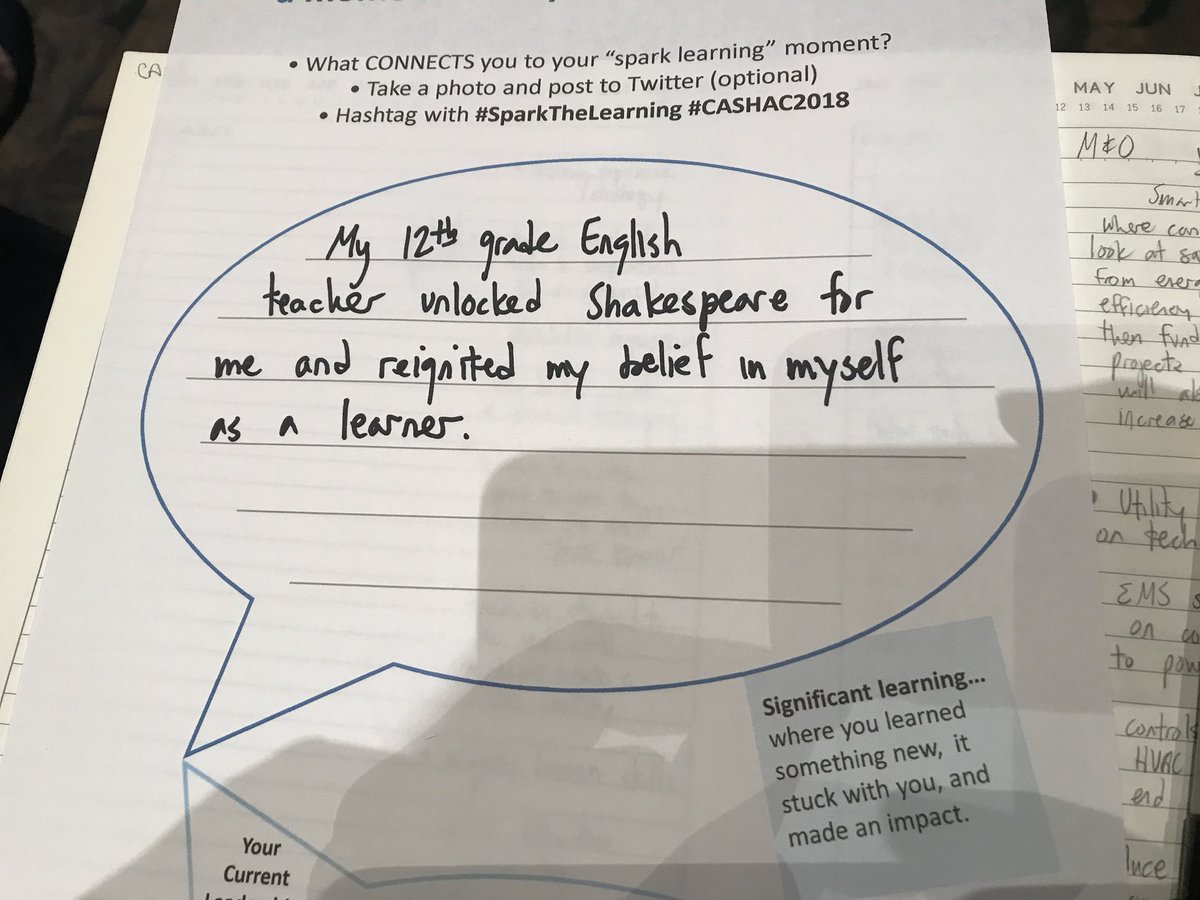 • What CONNECTS you to your “spark learning” moment?
• Take a photo and post to Twitter (optional)
• Hashtag with #SparkTheLearning #CASHAC2018
My 12th grade English
teacher unlocked Shakespeare for
me and reignited my belief in myself
as a learner.
Significant learning...
where you learned
something new, it
stuck with you, and
made an impact.
Your
Current
CA
MAY JUN
12 13 14 15 16 17
M&O
Smart
Where can
look at
from
efficiency
then fund
projects
will
increase
• Utility
on tech
EMS
on
to
controls
HVAC
end